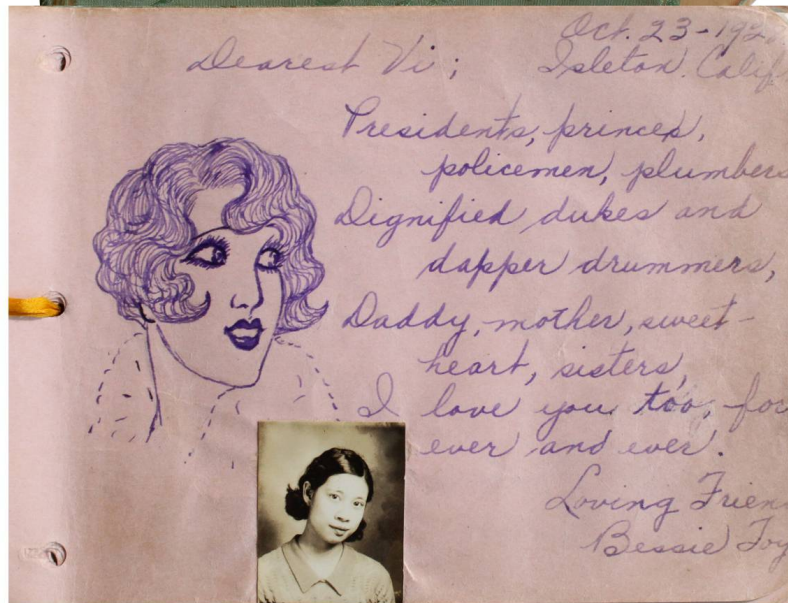 Oct. 23-192
Dearest Vi; Isleton, Calif
Presidents, princes,
policemen, plumbers
Dignified dukes and
dapper drummers,
Daddy, mother, sweet-
heart, sisters,
I love you too, for
ever and ever.
Loving Frien
Bessie Toy